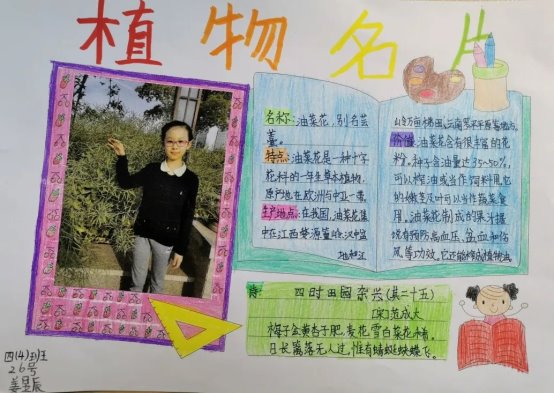 植物名片
名称:油菜花,别名芸
薹。
特点:油菜花是一种十字
花科的一年生草本植物,
原产地在欧洲与中亚一带。
生产地点:在我国,油菜花集
中在江西婺源篁岭、汉中盆
地和江
价值:油菜花含有很丰富的花
粉。种子含油量达35~50%,
可以榨油或当作饲料用,它
的嫩茎及叶可以当作蔬菜食
用。油菜花制成的果汁据
说有预防高血压、贫血和伤
风等功效。它还能作成植物油
诗
四时田园杂兴(其二十五)
[宋]范成大
梅子金黄杏子肥,麦花雪白菜花稀。
日长篱落无人过,惟有蜻蜓蛱蝶飞。
四(4)班
26号
姜昱辰